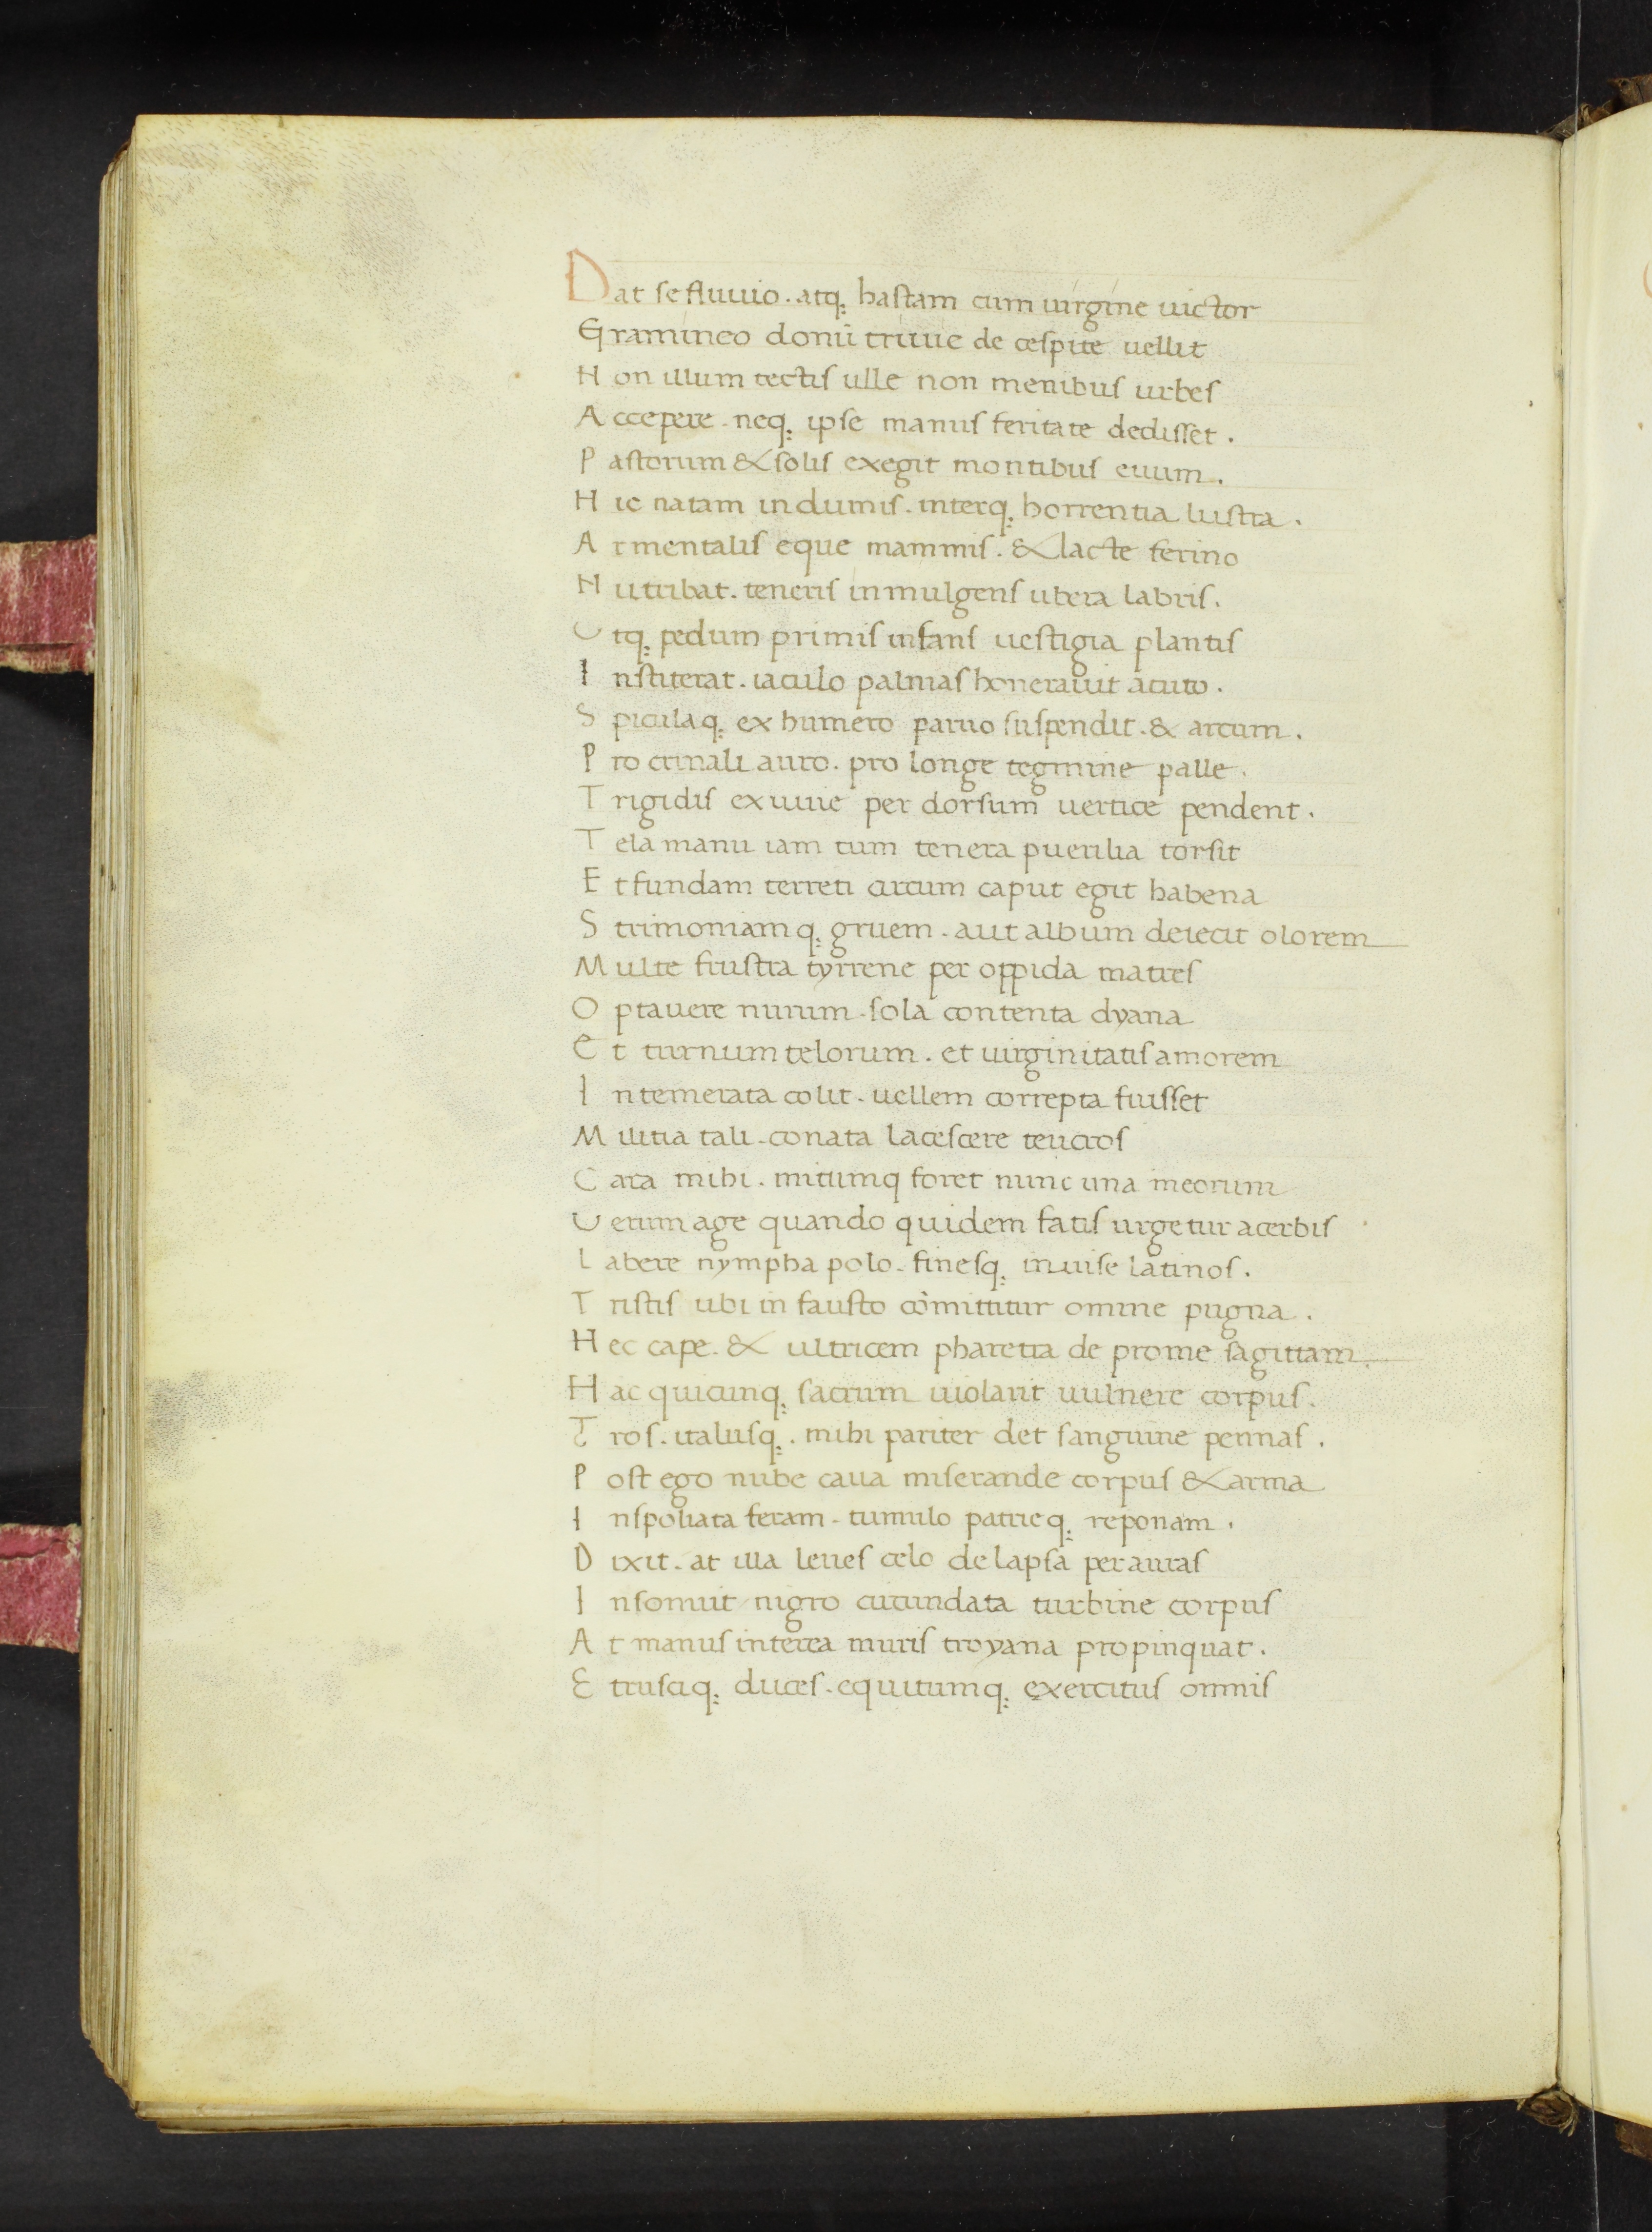 Dat se fluuio. atq; hastam cum uirgine uictor
Gramineo donū triuie de cespite uellit
Non illum tectis ulle non menibus urbes
Accepere. neq; ipse manus feritate dedisset.
Pastorum & solis exegit montibus euum.
Hic natam in dumis. interq; horrentia lustra.
Armentalis eque mammis. & lacte ferino
Nutribat. teneris inmulgens ubera labris.
Utq; pedum primis infans uestigia plantis
Institerat. iaculo palmas honerauit acuto.
Spiculaq; ex humero paruo suspendit. & arcum.
Pro crinali auro. pro longe tegmine palle.
Trigidis exuuie per dorsum uertice pendent.
Tela manu iam tum tenera puerilia torsit
Et fundam terreti circum caput egit habena
Strimoniamq; gruem. aut album deiecit olorem
Multe frustra tyrrene per oppida matres
Optauere nurum. sola contenta dyana
Et turnum telorum. et uirginitatis amorem
Intemerata colit. uellem correpta fuisset
Militia tali. conata lacescere teucros
Cara mihi. mitumq foret nunc una meorum
Uerum age quando quidem fatis urgetur acerbis
Labere nympha polo. finesq; inuise latinos.
Tristis ubi in fausto cōmittitur omine pugna.
Hec cape. & ultricem pharetra de prome sagittam.
Hac quicunq; sacrum uiolarit uulnere corpus.
Tros. italusq;. mihi pariter det sanguine pennas.
Post ego nube caua miserande corpus & arma
Inspoliata feram. tumulo patrieq; reponam.
Dixit. at illa leues celo delapsa per auras
Insonuit nigro circundata turbine corpus
At manus interea muris troyana propinquat.
Etrusciq; duces. equitumq; exercitus omnis